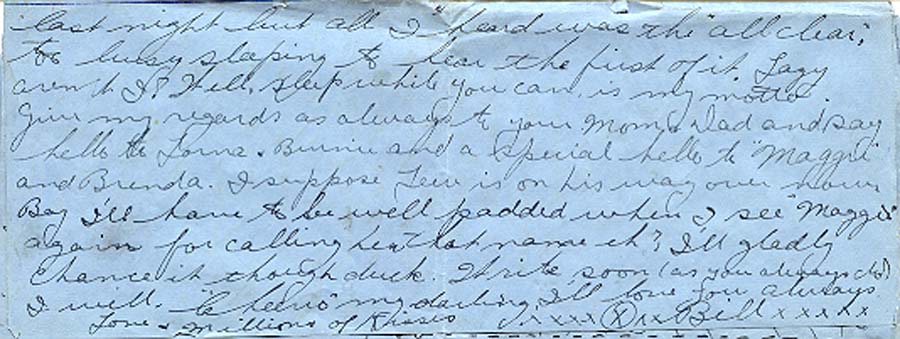 last night but all I heard was the "all clear",
to busy sleeping to hear the first of it. Lazy
aren't I? Well, sleep while you can, is my motto.
Give my regards as always to your Mom & Dad and say
hello to Lorna & Bernie and a special hello to "Maggie"
and Brenda. I suppose Lew is on his way over now.
Boy I'll have to be well padded when I see "Maggie"
again for calling her that name eh? I'll gladly
chance it though duck. Write soon (as you always do)
I will. "Cheerio" my darling I'll love you always
Love & Millions of Kisses xxxx (X) xx Bill xxxxx